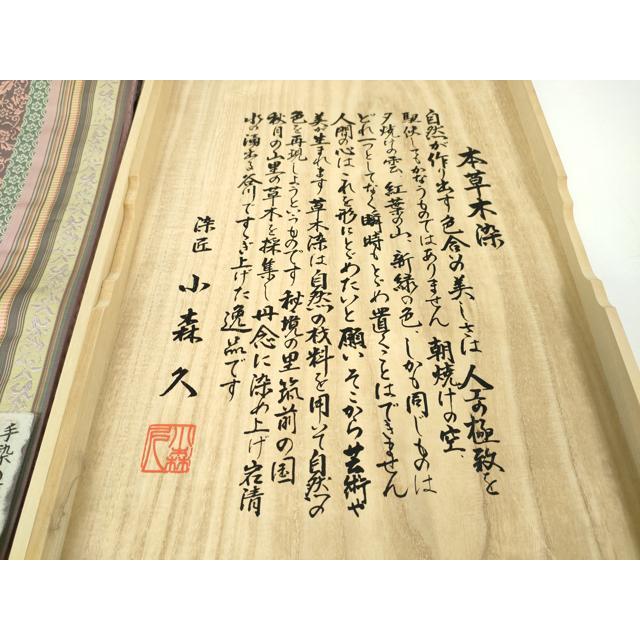 本草木染
自然が作り出す色合の美しさは人工の極致を
駆使してもかなうものではありません 朝焼けの空、
夕焼けの雲、紅葉の山、新緑の色、しかも同じものは
どれ一つとしてなく、瞬時もとどめ置くことはできません
人間の心はこれを形にとどめたいと願い、そこから芸術や
美が生まれます 草木染は自然の材料を用いて自然への
色を再現しようというものです 秘境の里筑前の国
秋月の山里の草木を採集し丹念に染め上げ岩清
水の湧出る谷川ですすぎ上げた逸品です
染匠 小森久
小森久
手染